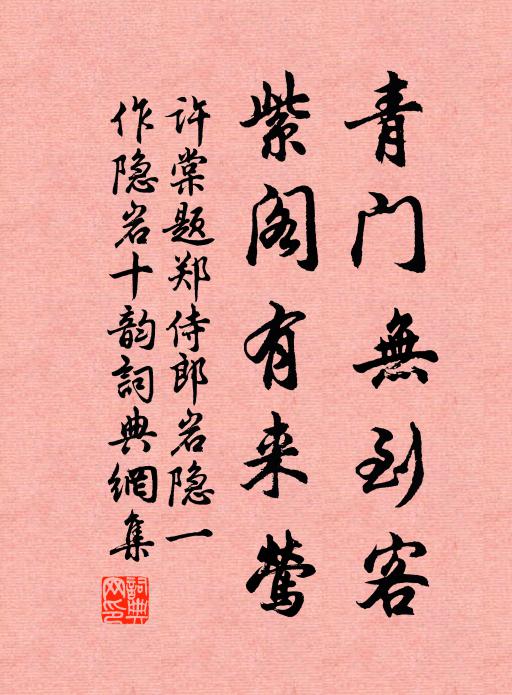 青门無到客
紫阁有来莺
许棠题郑侍郎岩隐一
作隐岩十韵詞典網集
詞典網印